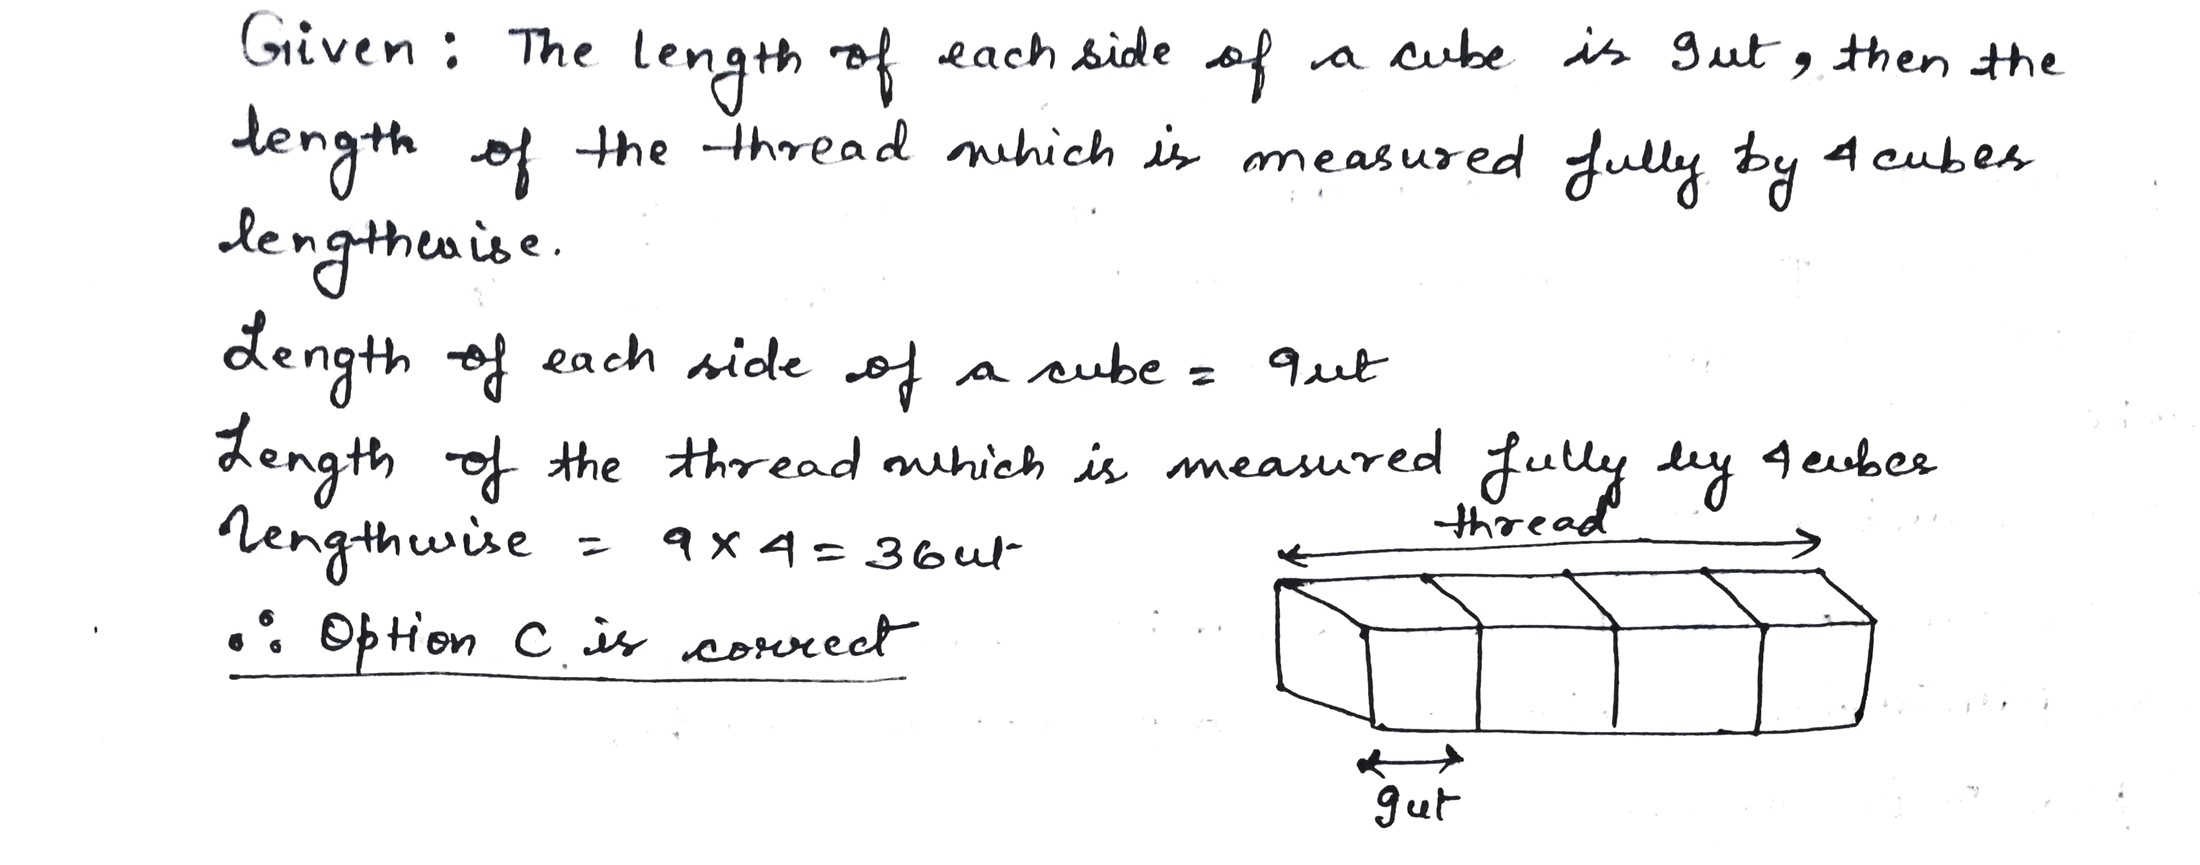 Given : The length of each side of a cube is 9ut, then the
length of the thread which is measured fully by 4 cubes
lengthwise.
Length of each side of a cube = 9ut
Length of the thread which is measured fully by 4 cubes
lengthwise = 9 x 4 = 36ut
thread
∴ Option C is correct
9ut